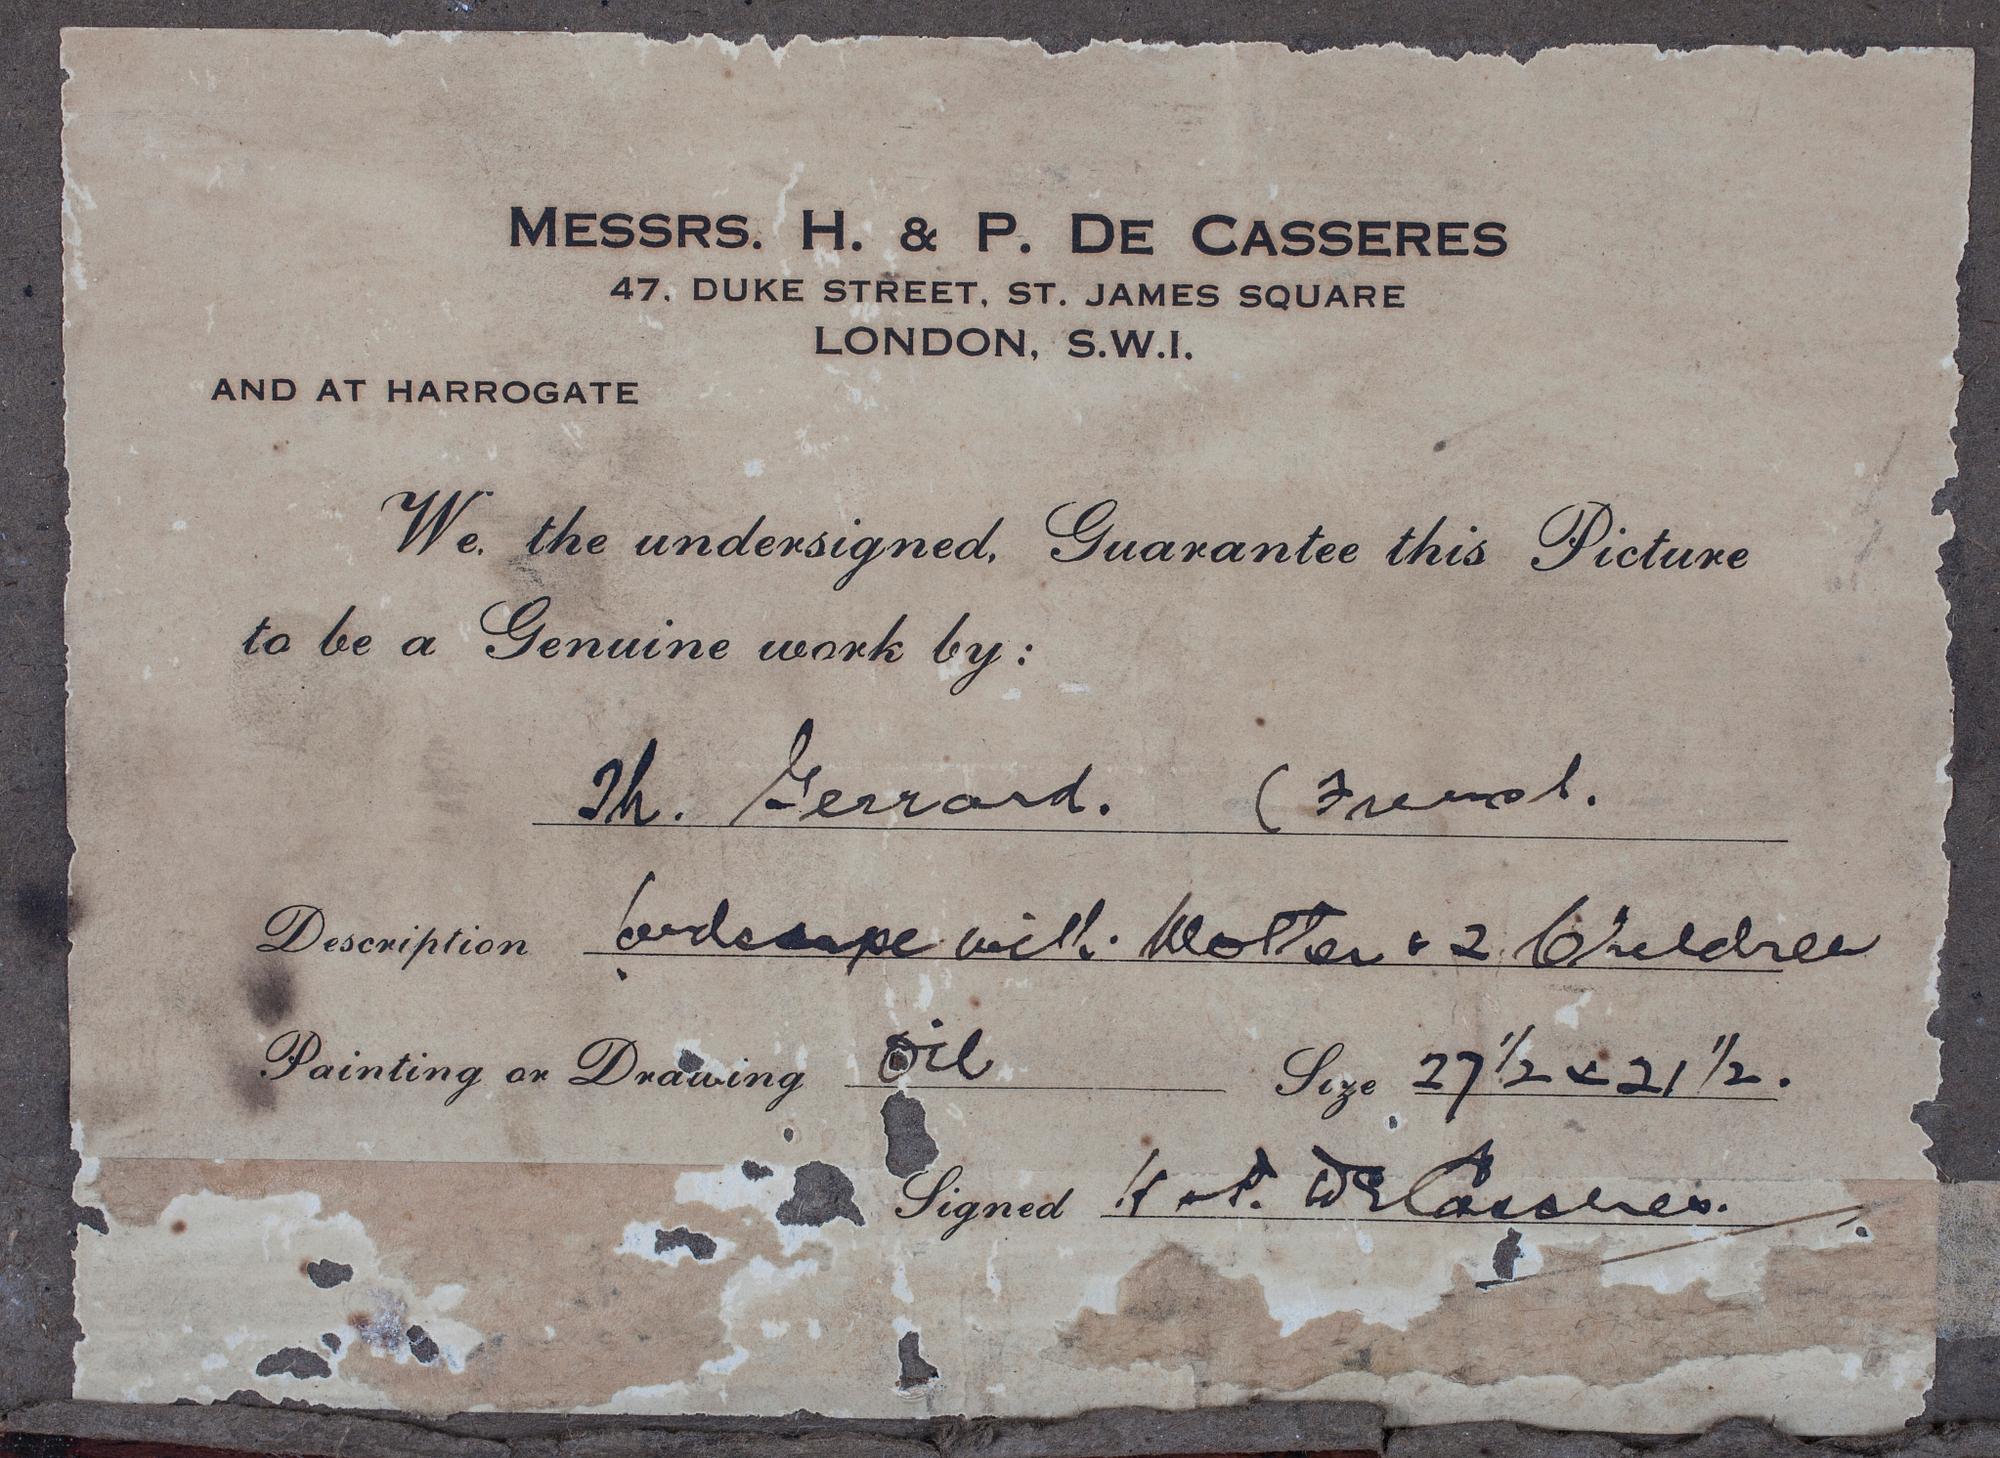 MESSRS. H. & P. DE CASSERES
47, DUKE STREET, ST. JAMES SQUARE
LONDON, S.W.I.
AND AT HARROGATE
We, the undersigned, Guarantee this Picture
to be a Genuine work by:
Th. Gerrard. (French.
Description Landscape with Mother & 2 Children
Painting or Drawing Oil Size 27 1/2 x 21 1/2.
Signed H & P. De Casseres.